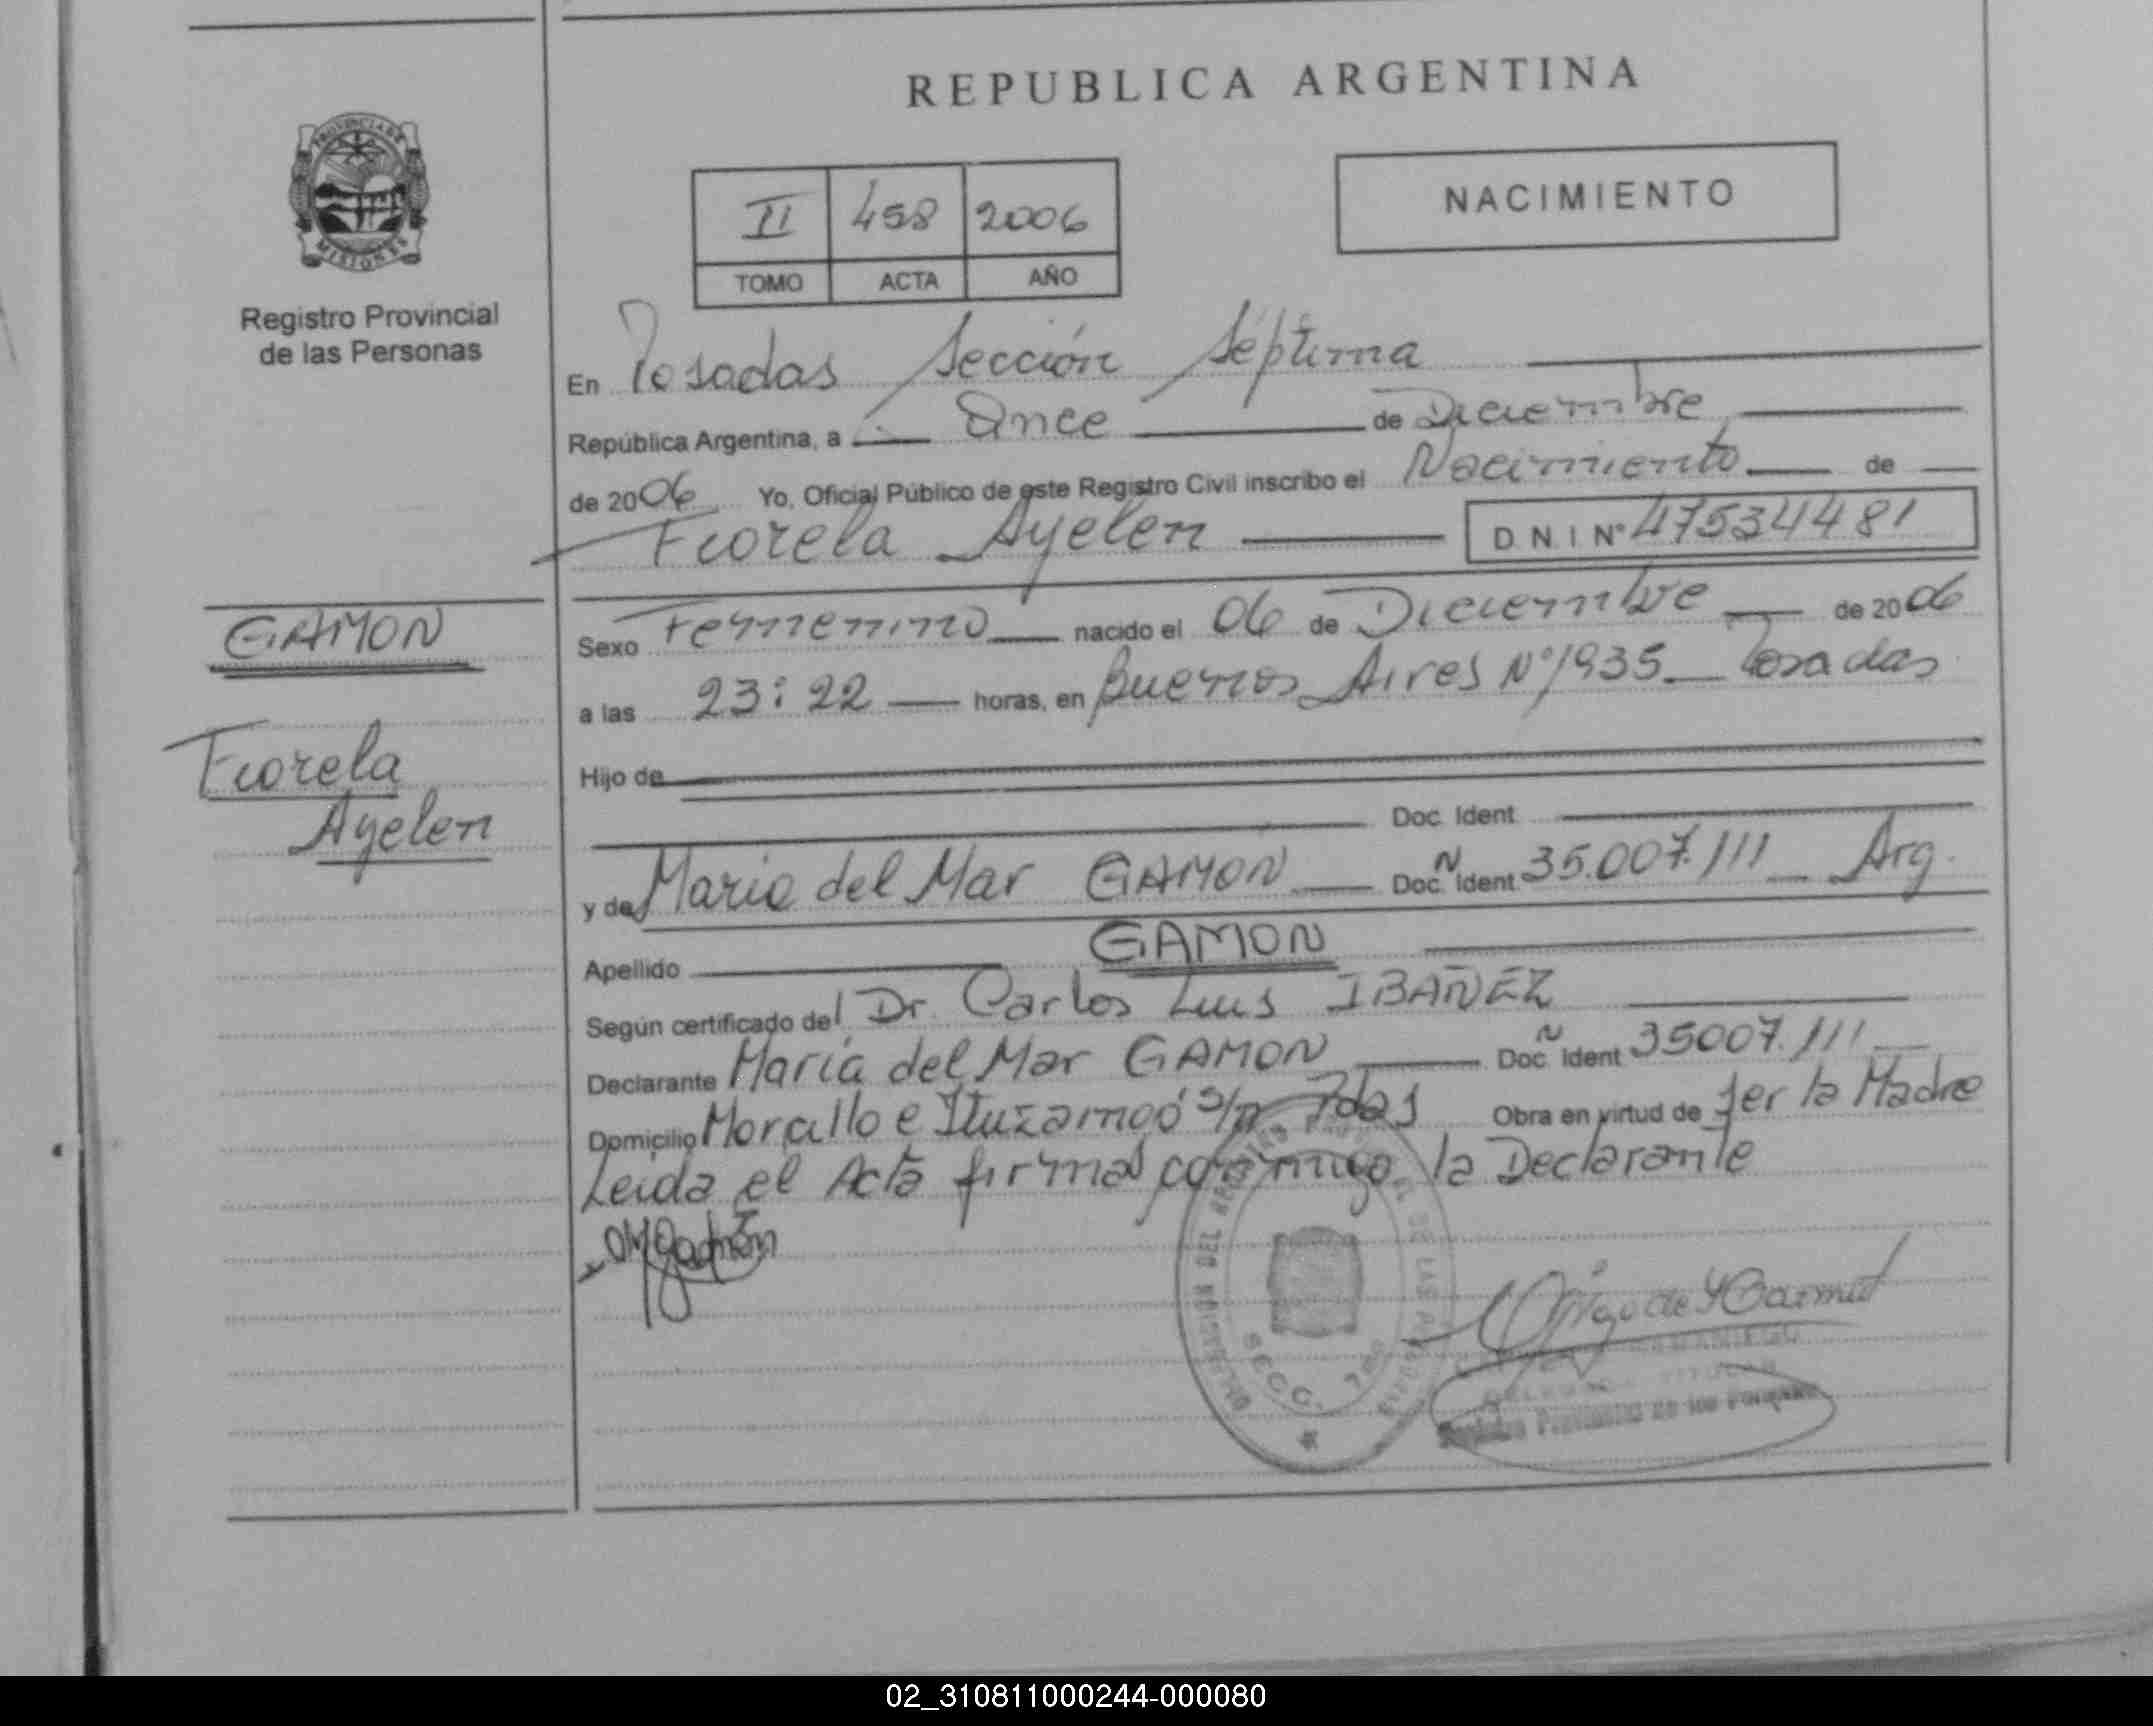 REPUBLICA ARGENTINA
PROVINCIA DE
MISIONES
Registro Provincial
de las Personas
II 458 2006
TOMO ACTA AÑO
NACIMIENTO
En Posadas Sección Séptima
República Argentina, a Once de Diciembre
de 2006 Yo, Oficial Público de este Registro Civil inscribo el Nacimiento de
Fiorela Ayelen D.N.I Nº 47534481
GAMON
Fiorela
Ayelen
Sexo Femenino nacido el 06 de Diciembre de 2006
a las 23:22 horas, en Buenos Aires Nº 1935 Posadas
Hijo de
Doc. Ident.
y de Maria del Mar GAMON Doc. Ident. 35.007.111 Arg.
Apellido GAMON
Según certificado del Dr. Carlos Luis IBAÑEZ
Declarante María del Mar GAMON Doc. Ident. 35007.111
Domicilio e Ituzaingó s/n Pdas Obra en virtud de Ser la Madre
Leída el Acta firma conmigo la Declarante
SECC. 7ma
Registro Provincial de las Personas
02_310811000244-000080